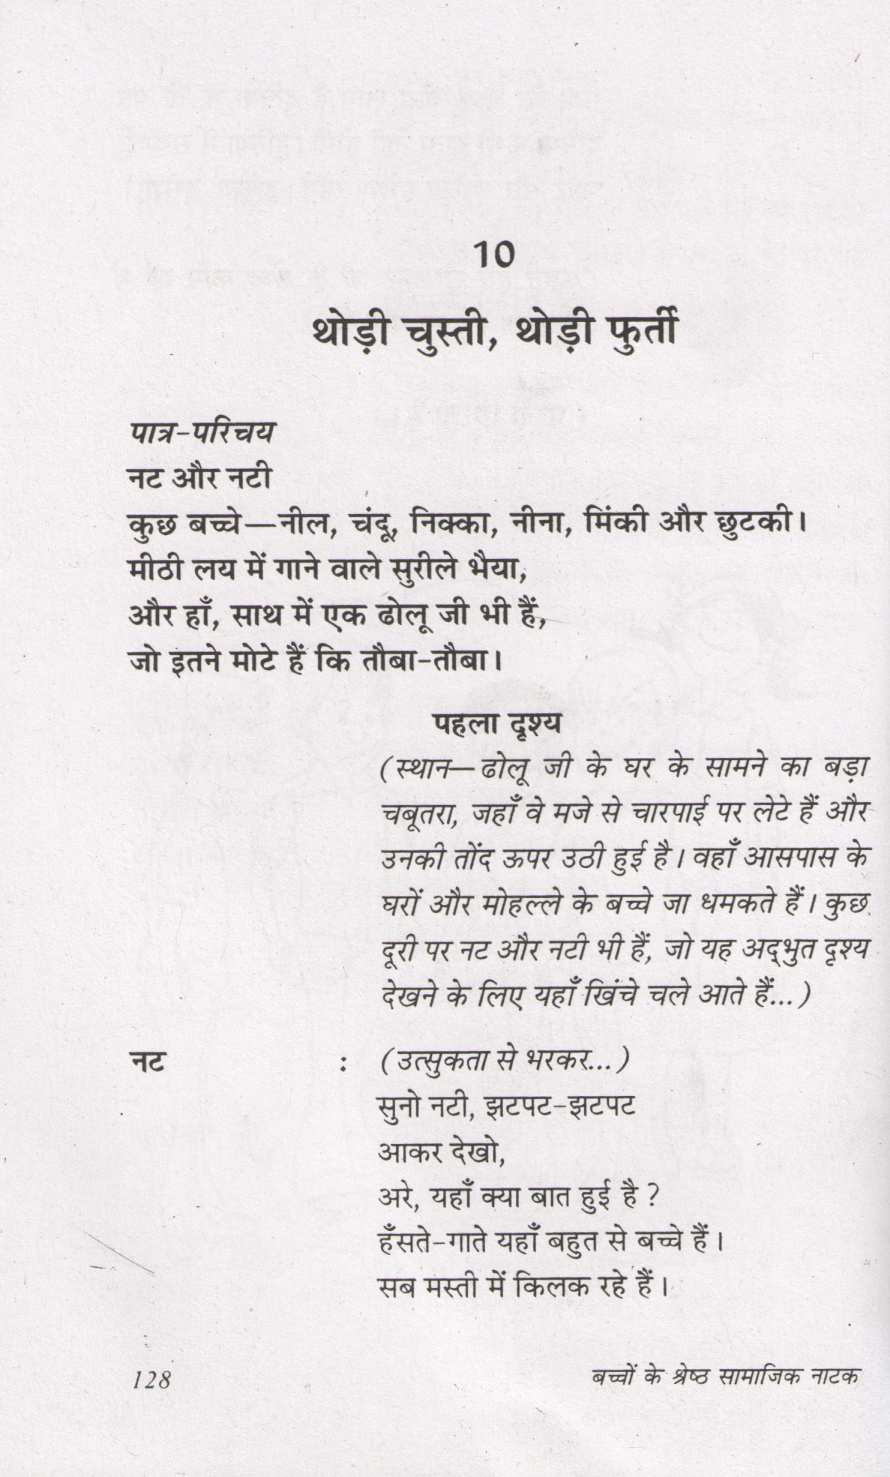 10
थोड़ी चुस्ती, थोड़ी फुर्ती
पात्र-परिचय
नट और नटी
कुछ बच्चे—नील, चंदू, निक्का, नीना, मिंकी और छुटकी।
मीठी लय में गाने वाले सुरीले भैया,
और हाँ, साथ में एक ढोलू जी भी हैं,
जो इतने मोटे हैं कि तौबा-तौबा।
पहला दृश्य
(स्थान—ढोलू जी के घर के सामने का बड़ा
चबूतरा, जहाँ वे मजे से चारपाई पर लेटे हैं और
उनकी तोंद ऊपर उठी हुई है। वहाँ आसपास के
घरों और मोहल्ले के बच्चे जा धमकते हैं। कुछ
दूरी पर नट और नटी भी हैं, जो यह अद्‌भुत दृश्य
देखने के लिए यहाँ खिंचे चले आते हैं...)
नट : (उत्सुकता से भरकर...)
सुनो नटी, झटपट-झटपट
आकर देखो,
अरे, यहाँ क्या बात हुई है ?
हँसते-गाते यहाँ बहुत से बच्चे हैं।
सब मस्ती में किलक रहे हैं।
128 बच्चों के श्रेष्ठ सामाजिक नाटक